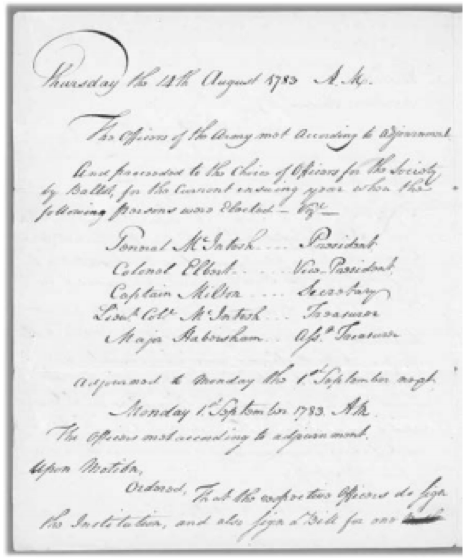 Thursday the 14th August 1783 A.M.
The Officers of the Army met According to Adjournment
And proceeded to the Choice of Officers for the Society
by Ballot, for the Current ensuing year when the
following Persons were Elected – Vizt
General McIntosh .... President
Colonel Elbert ..... Vice-President
Captain Milton ..... Secretary
Lieut Colo. McIntosh ... Treasurer
Major Habersham ... Asst. Treasurer
Adjourned to Monday the 1st September next.
Monday 1st September 1783. AM.
The Officers met according to adjournment.
Upon Motion,
Ordered, That the respective Officers do sign
the Institution, and also sign a Bill for one